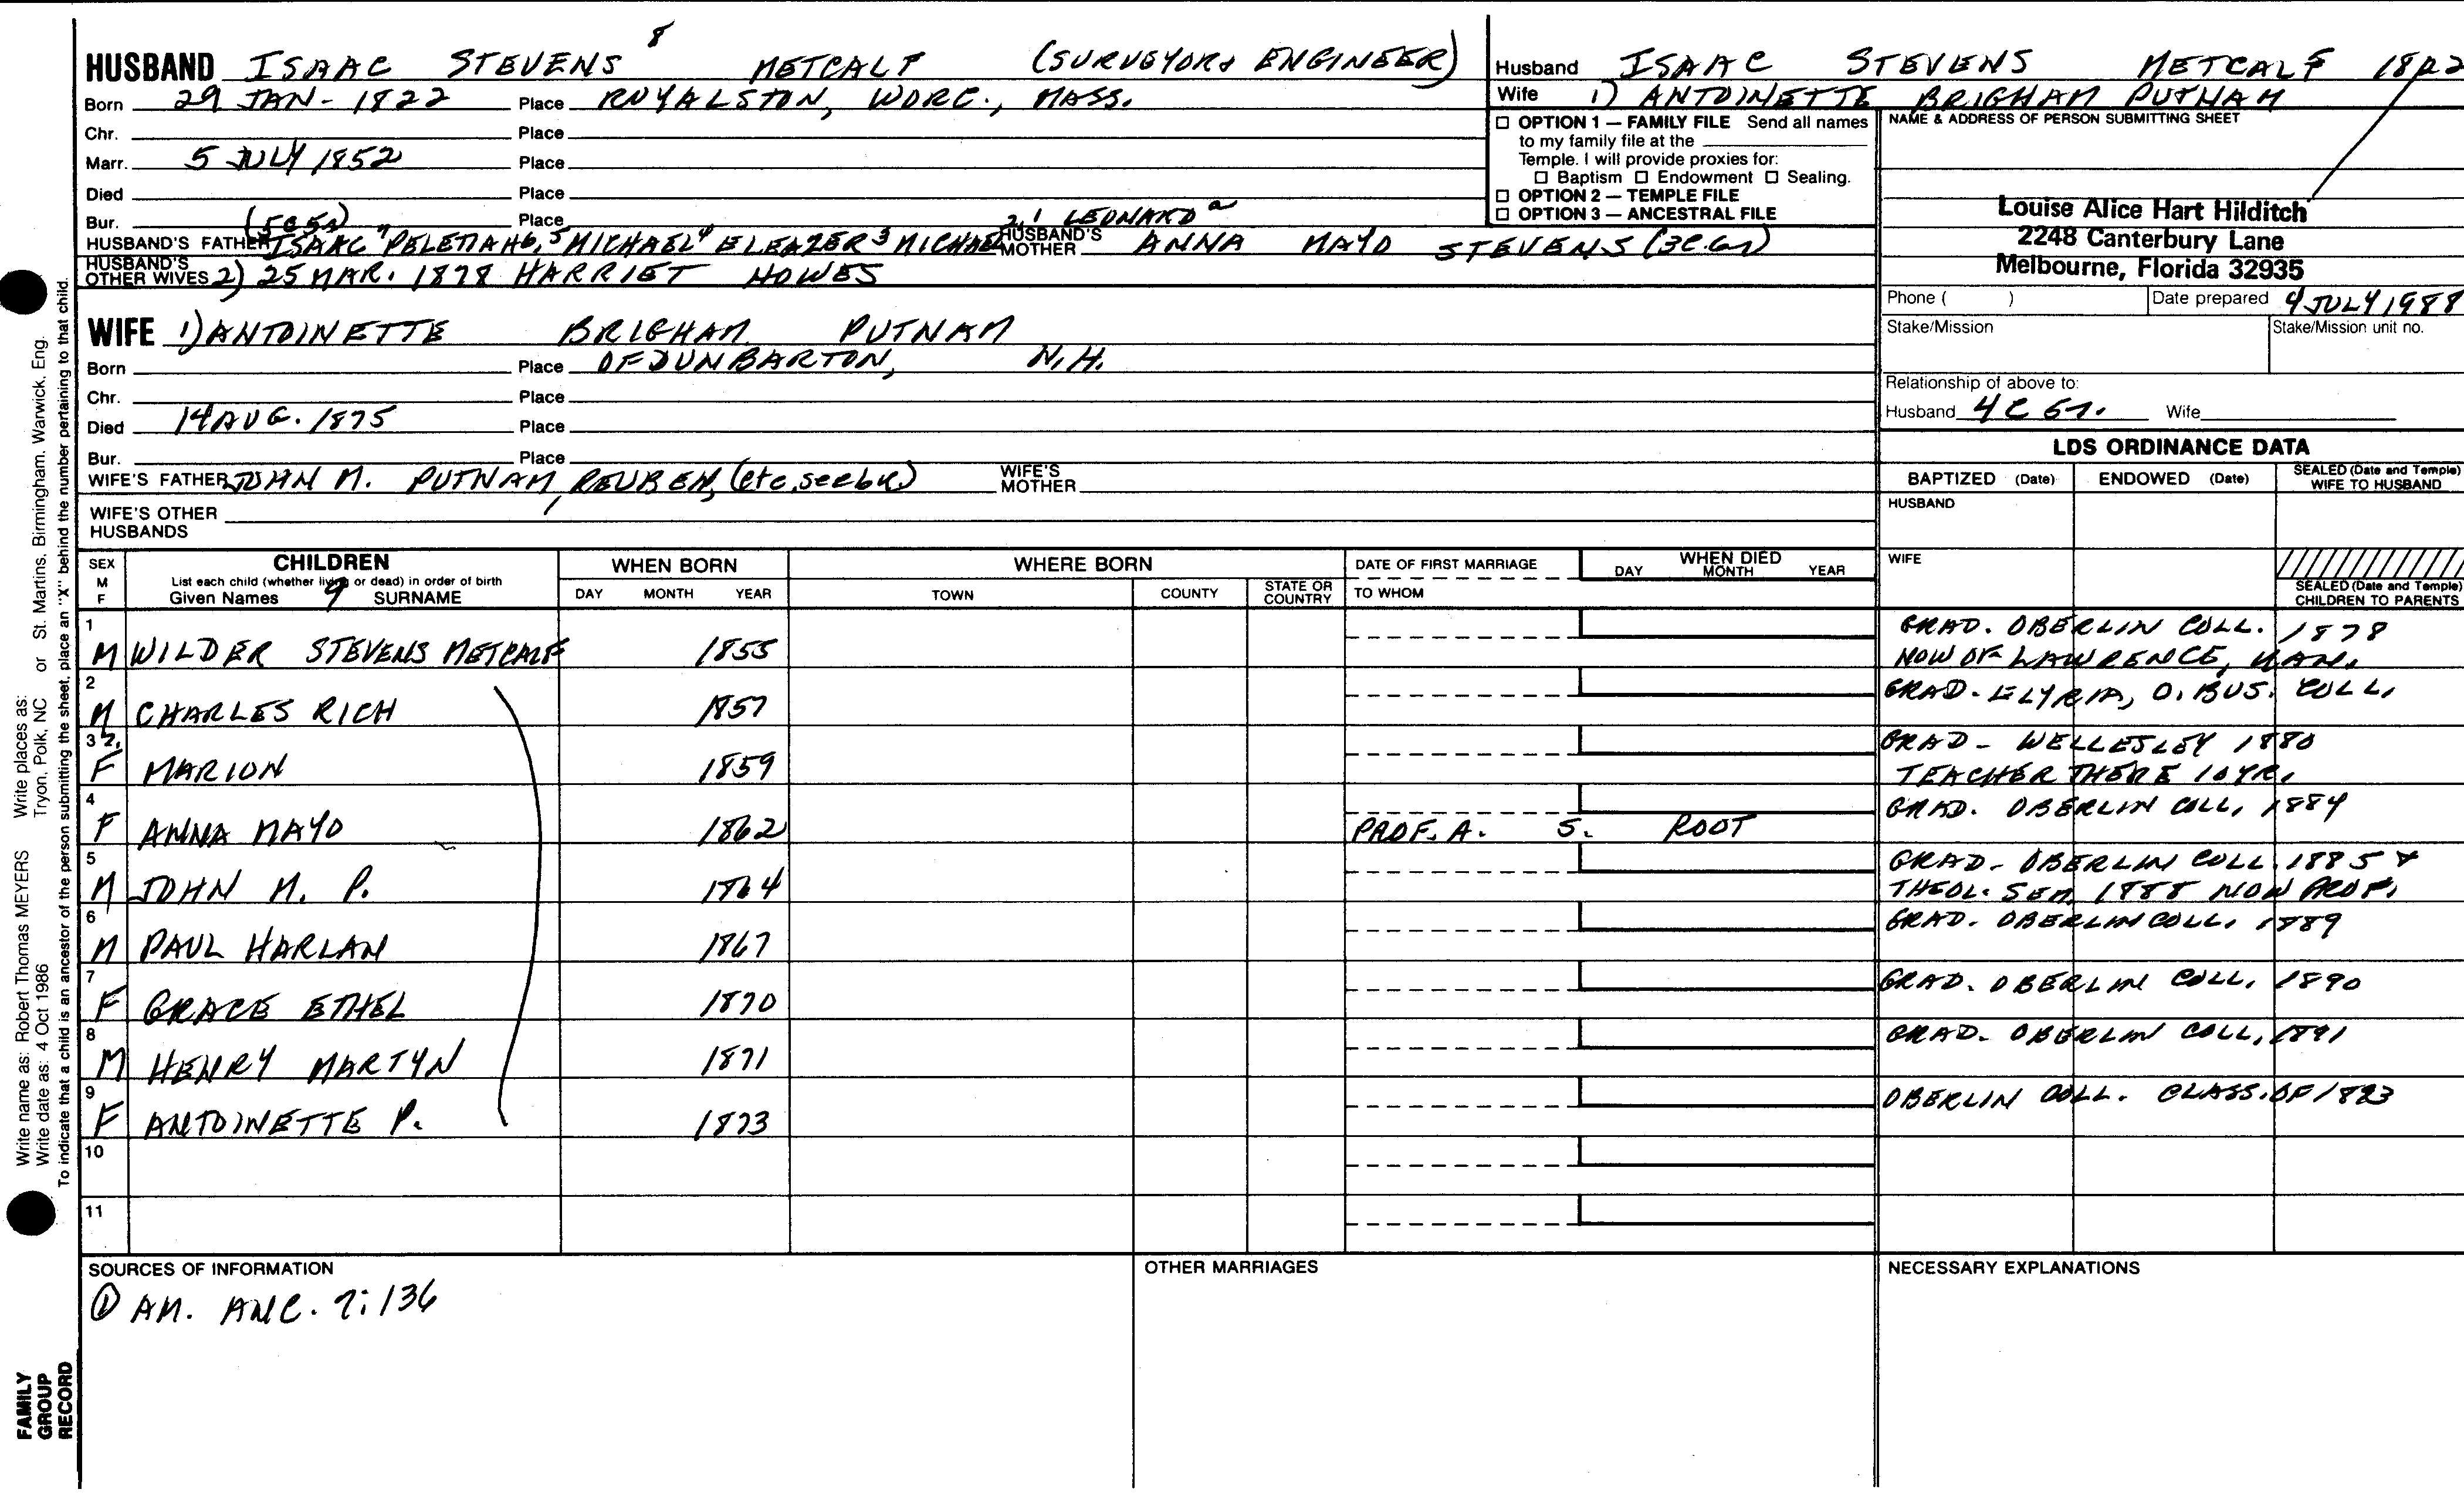 HUSBAND ISAAC STEVENS 8 METCALF (SURVEYOR & ENGINEER)
Born 29 JAN - 1822 Place ROYALSTON, WORC., MASS.
Chr. Place
Marr. 5 JULY 1852 Place
Died Place
Bur. (5C5R) Place 2, 1 LEONARD a
HUSBAND'S FATHER ISAAC 7 PELETIAH 6, 5 MICHAEL 4 ELEAZER 3 MICHAEL HUSBAND'S MOTHER ANNA MAYO STEVENS (3C.6R)
HUSBAND'S OTHER WIVES 2) 25 MAR. 1878 HARRIET HOWES
WIFE 1) ANTOINETTE BRIGHAM PUTNAM
Born Place OF DUNBARTON, N.H.
Chr. Place
Died 14 AUG. 1875 Place
Bur. Place
WIFE'S FATHER JOHN M. PUTNAM, REUBEN, (etc, see bk) WIFE'S MOTHER
WIFE'S OTHER HUSBANDS
Husband ISAAC STEVENS METCALF 1822
Wife 1) ANTOINETTE BRIGHAM PUTNAM
☐ OPTION 1 — FAMILY FILE Send all names
to my family file at the
Temple. I will provide proxies for:
☐ Baptism ☐ Endowment ☐ Sealing.
☐ OPTION 2 — TEMPLE FILE
☐ OPTION 3 — ANCESTRAL FILE
NAME & ADDRESS OF PERSON SUBMITTING SHEET
Louise Alice Hart Hilditch
2248 Canterbury Lane
Melbourne, Florida 32935
Phone ( ) Date prepared 4 JULY 1988
Stake/Mission Stake/Mission unit no.
Relationship of above to:
Husband 4C 6R. Wife
LDS ORDINANCE DATA
BAPTIZED (Date) ENDOWED (Date) SEALED (Date and Temple) WIFE TO HUSBAND
HUSBAND
WIFE
SEALED (Date and Temple) CHILDREN TO PARENTS
SEX M F CHILDREN WHEN BORN WHERE BORN DATE OF FIRST MARRIAGE WHEN DIED
List each child (whether living or dead) in order of birth
Given Names 9 SURNAME DAY MONTH YEAR TOWN COUNTY STATE OR COUNTRY TO WHOM DAY MONTH YEAR
1 M WILDER STEVENS METCALF 1855 GRAD. OBERLIN COLL. 1878
NOW OF LAWRENCE, KAN.
2 M CHARLES RICH 1857 GRAD. ELYRIA, O. BUS. COLL.
3 2, F MARION 1859 GRAD - WELLESLEY 1880
TEACHER THERE 10 YR.
4 F ANNA MAYO 1862 PROF. A. S. ROOT GRAD. OBERLIN COLL, 1884
5 M JOHN M. P. 1864 GRAD - OBERLIN COLL. 1885 &
THEOL. SEM, 1888 NOW PROF.
6 M PAUL HARLAN 1867 GRAD. OBERLIN COLL. 1889
7 F GRACE ETHEL 1870 GRAD. OBERLIN COLL. 1890
8 M HENRY MARTYN 1871 GRAD. OBERLIN COLL, 1891
9 F ANTOINETTE P. 1873 OBERLIN COLL. CLASS. OF 1893
10
11
SOURCES OF INFORMATION
① AM. ANC. 7:136
OTHER MARRIAGES
NECESSARY EXPLANATIONS
Write name as: Robert Thomas MEYERS Write places as: St. Martins, Birmingham, Warwick, Eng.
Write date as: 4 Oct 1986 Tryon, Polk, NC or
To indicate that a child is an ancestor of the person submitting the sheet, place an "X" behind the number pertaining to that child.
FAMILY
GROUP
RECORD